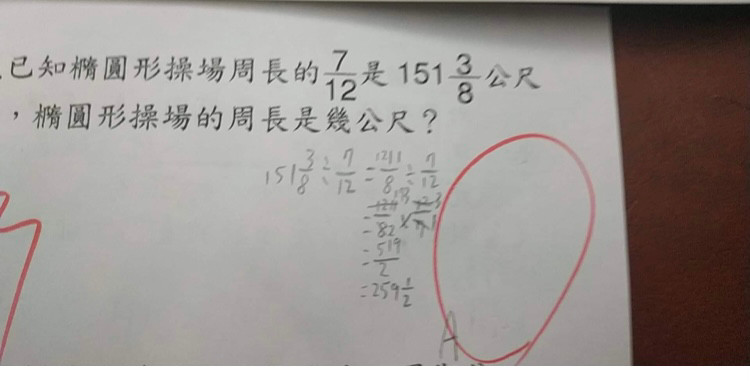 已知橢圓形操場周長的7/12是151 3/8公尺
，橢圓形操場的周長是幾公尺？
151 3/8÷7/12=1211/8÷7/12
=519/2
=259 1/2
A